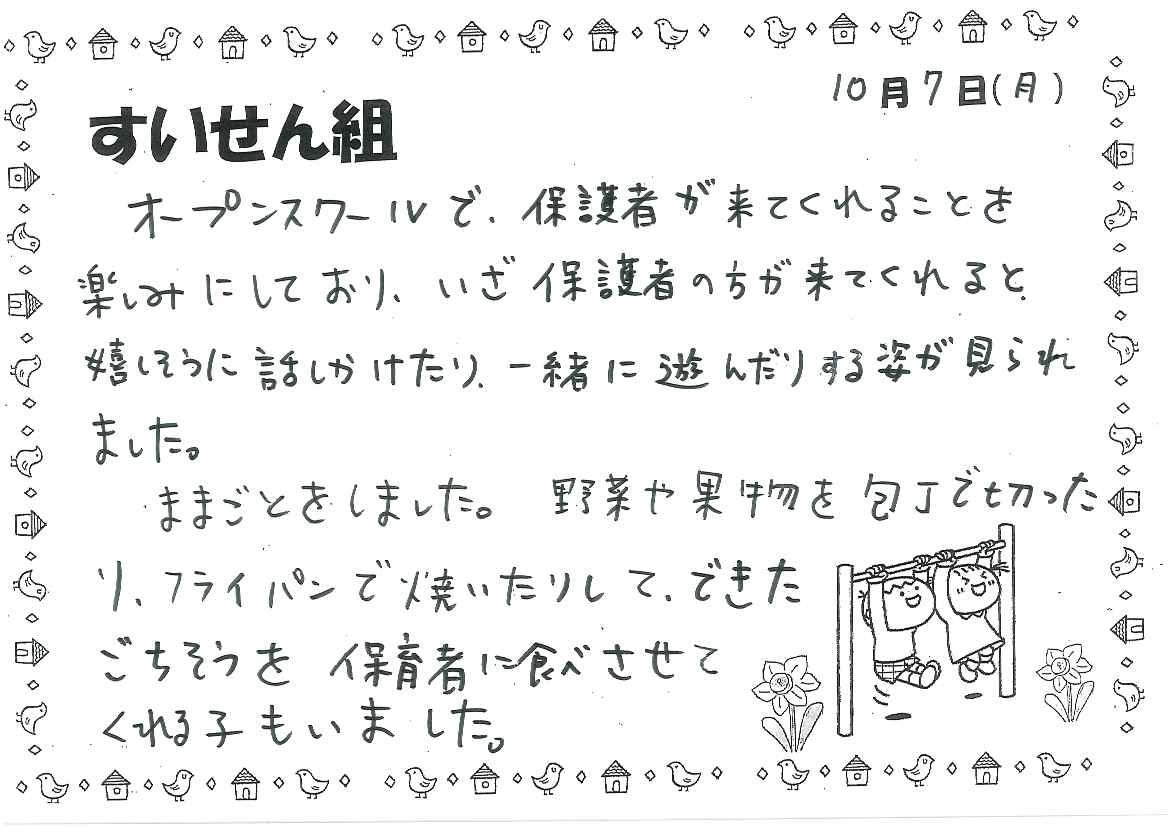 10月7日(月)
すいせん組
オープンスクールで、保護者が来てくれることを
楽しみにしており、いざ保護者の方が来てくれると、
嬉しそうに話しかけたり、一緒に遊んだりする姿が見られ
ました。
ままごとをしました。野菜や果物を包丁で切った
り、フライパンで焼いたりして、できた
ごちそうを保育者に食べさせて
くれる子もいました。